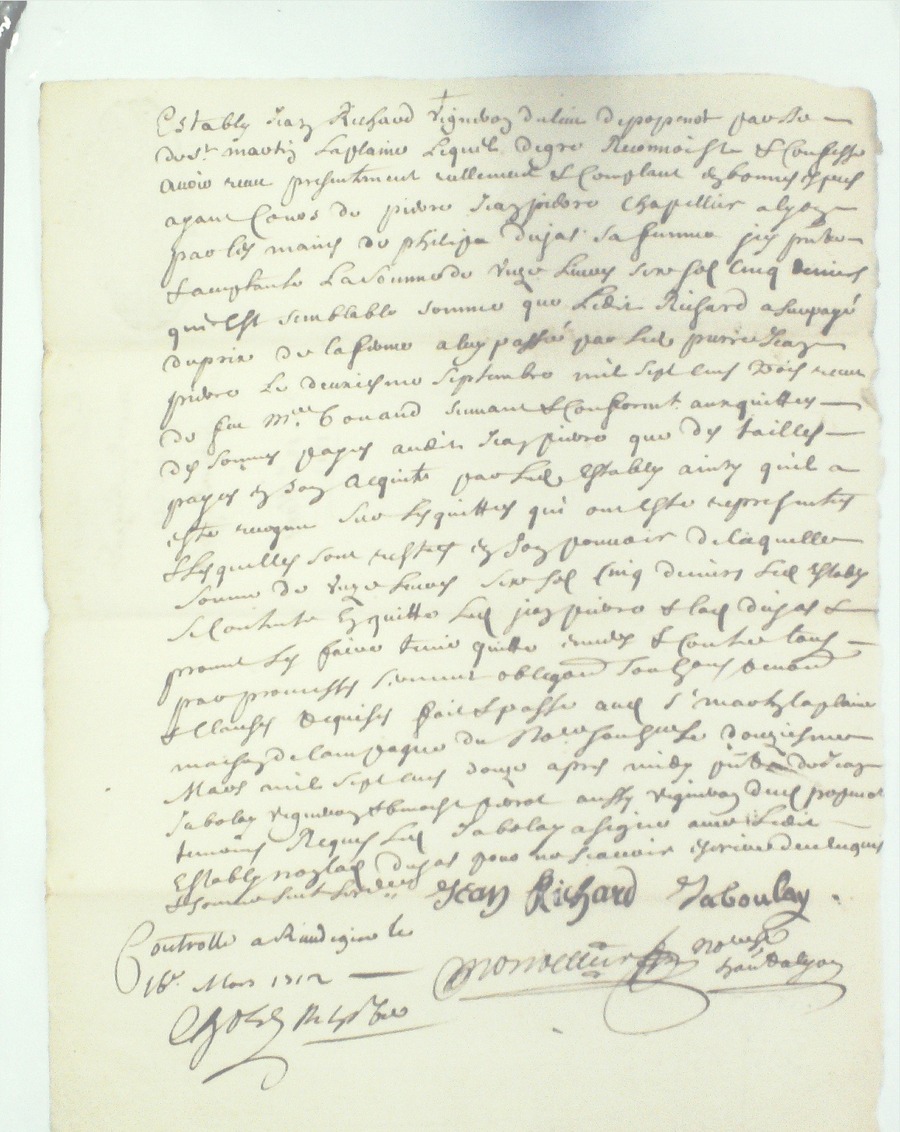 Estably Jean Richard vigneron du lieu de popenot parr.sse
de St. martin Laplaine Lequel de gré Reconnoist & Confesse
avoir receu presentement reellement & Comptant en bonnes especes
ayant Cours de pierre Jean pierre Chapellier a lyon
par les mains de philipe dujas sa femme icy pnte
& acceptante La somme de unze Livres seize sol Cinq deniers
qu'est semblable somme que Ledit Richard a surpayé
du prix de la ferme a luy passée par Led. pierre Jean
pierre Le deuxiesme Septembre mil sept cens trois receue
de feu Me. suivant & Conforment. aux quittes
des sommes payes audit Jean pierre que des tailles
payes en son acquit par Led. Estably ainsy qu'il a
este recognu sur Les quittes qui ont esté representés
& Lesquelles sont restees en son pouvoir de laquelle
somme de unze Livres seize sol Cinq deniers Led. Estably
se Contente En quitte Led. jean pierre & lad. dujas &
promet Les faire tenir quitte envers & Contre tous
par promesses serment obligaon soubmons renonon
& Clauses Requises fait & passé aud. St. martin laplaine
maison de campagne du No.re soubsne Le douziesme
Mars mil sept cens douze apres midy pnts de Jean
Jaboulay vigneron & benoist pierot aussy vigneron dud. popenot
temoins Requis Led. Jaboulay a signé avec Ledit
Estably non lad. dujas pour ne scavoir escrire de ce enquis
& sommé
Jean Richard Jaboulay
Controllé a Rivedegier le
16e. Mars 1712
No.re